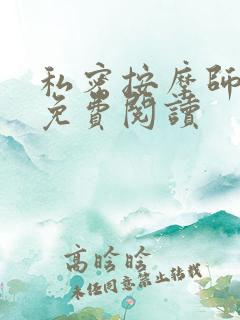 私密按摩師
免費閱讀
高晗晗
未任同意禁止转载